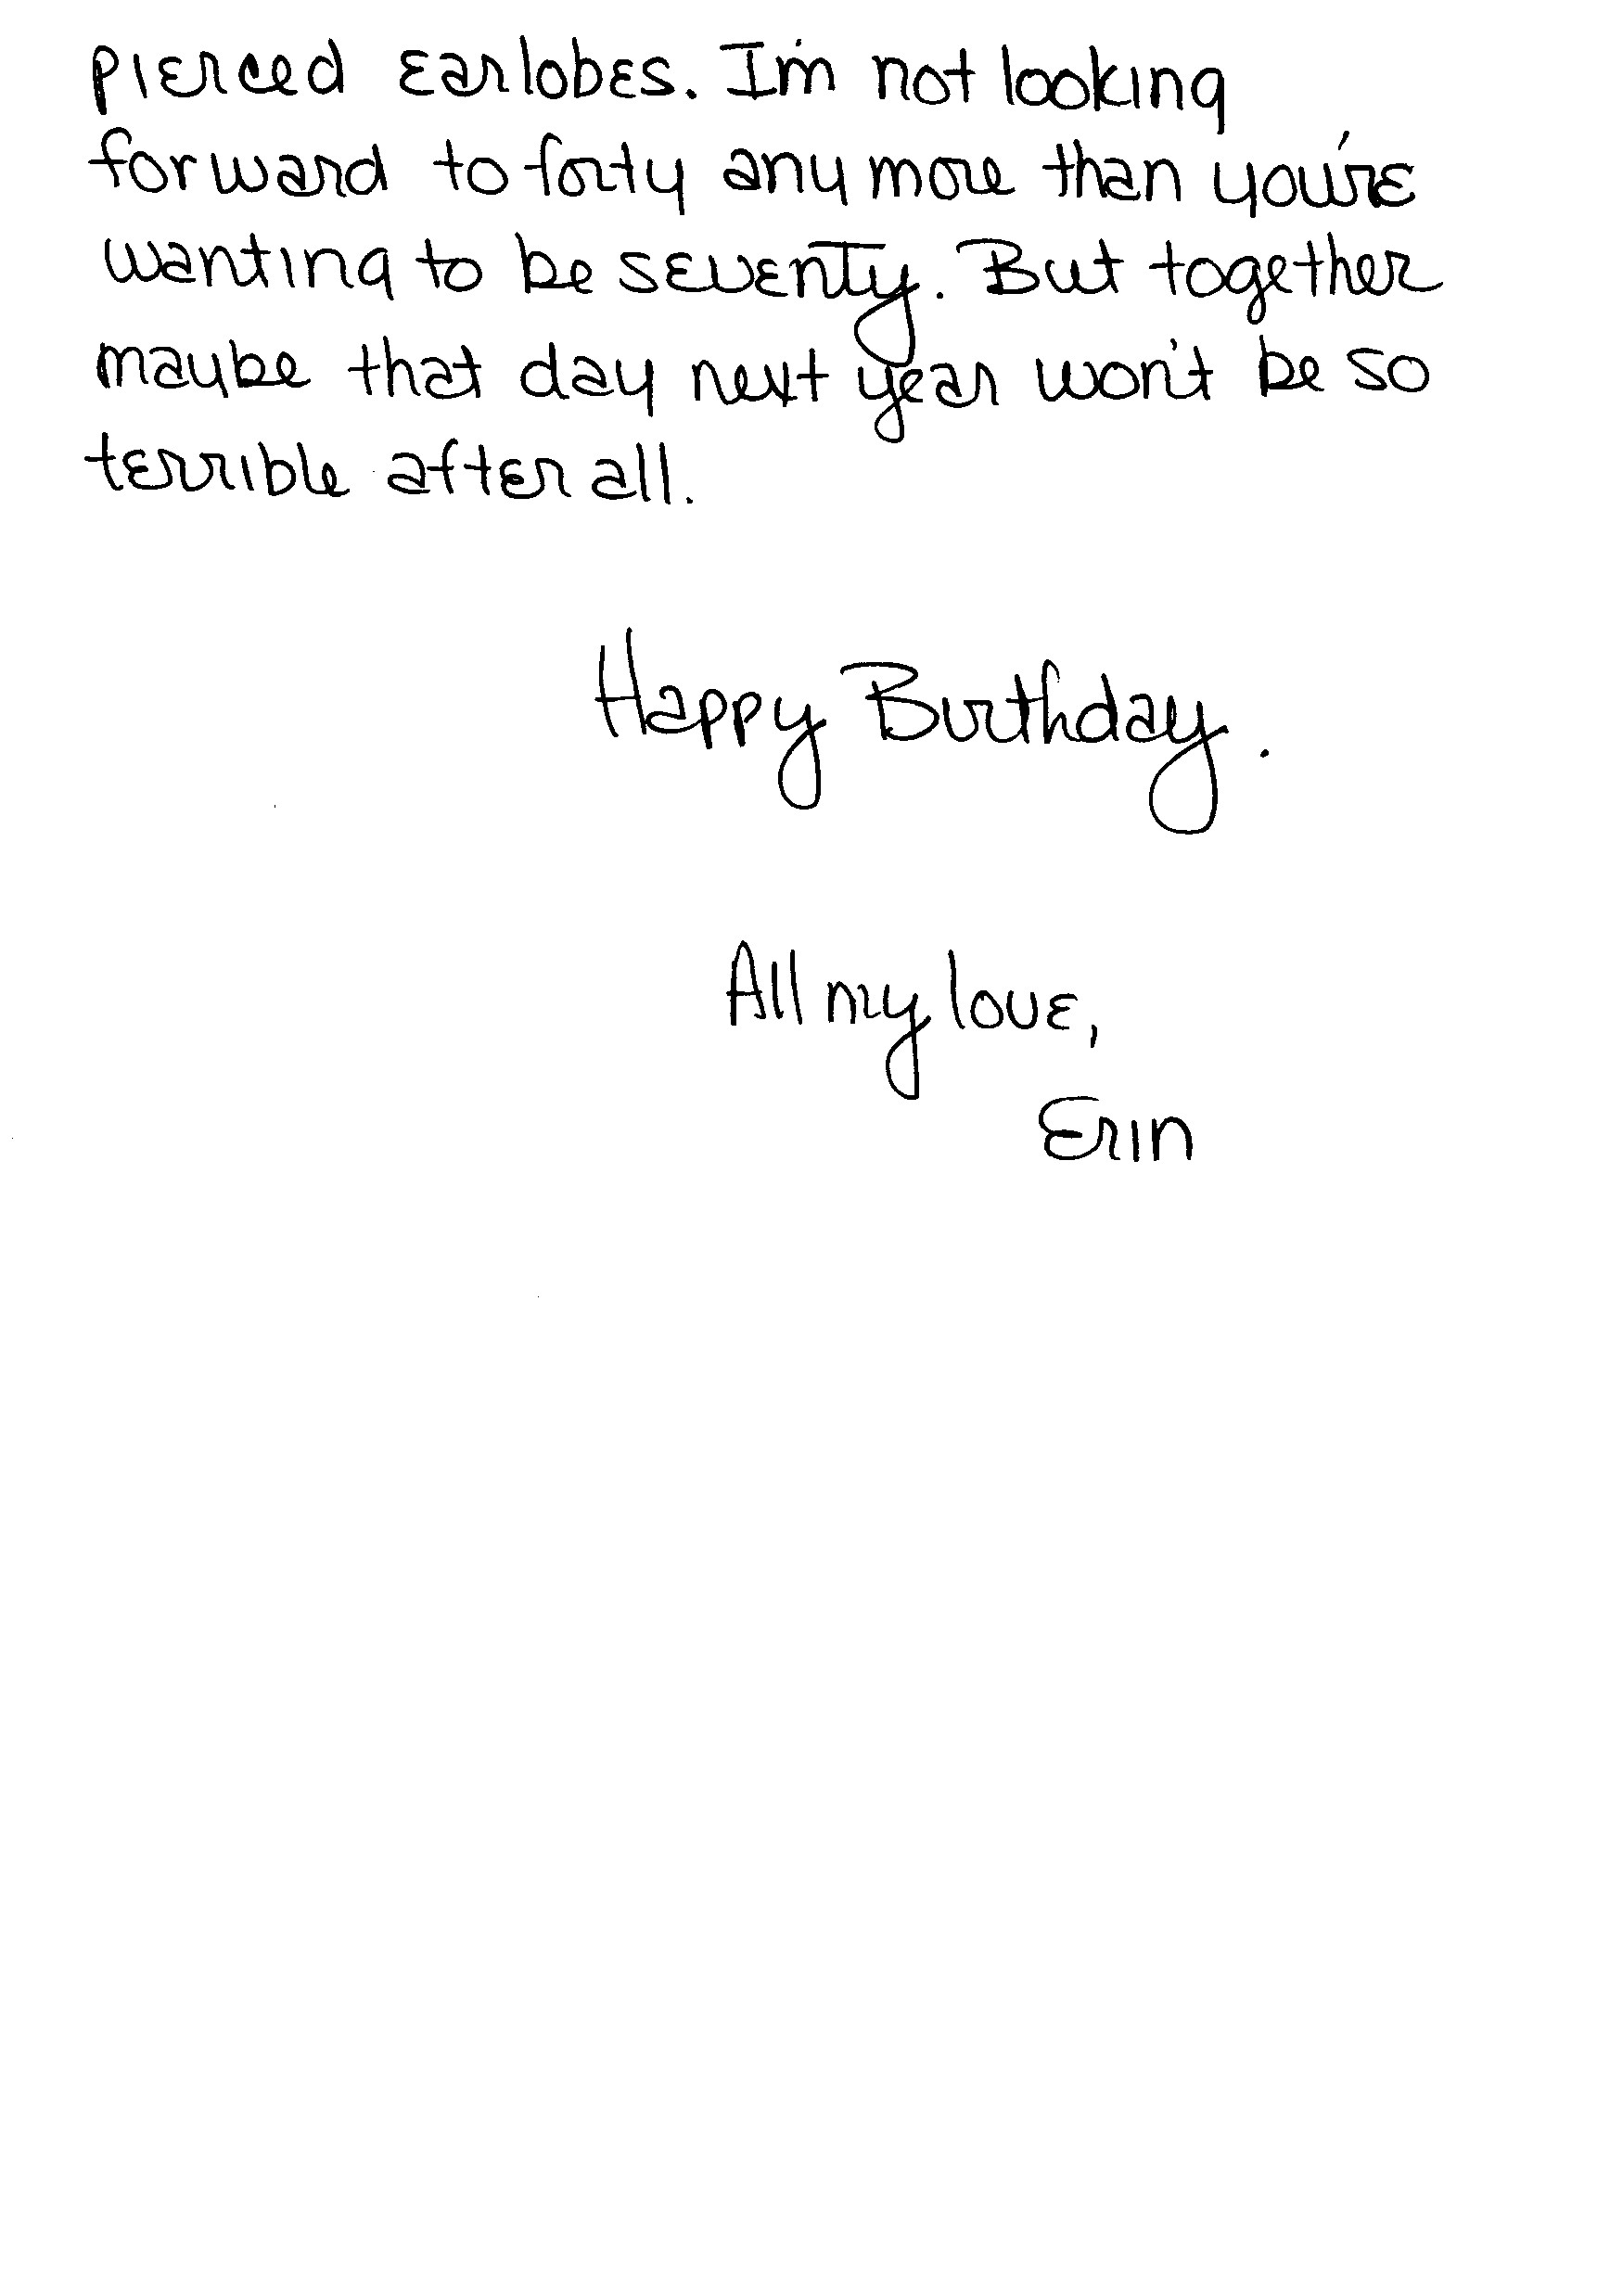 pierced earlobes. I'm not looking
forward to forty any more than you're
wanting to be seventy. But together
maybe that day next year won't be so
terrible after all.
Happy Birthday.
All my love,
Erin